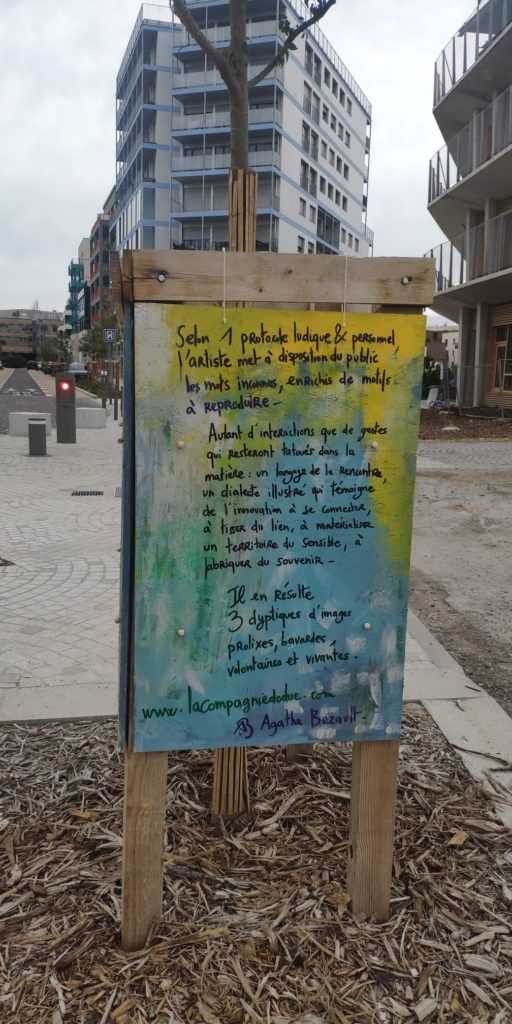 Selon 1 protocole ludique & personnel,
l'artiste met à disposition du public
les mots inconnus, enrichis de motifs
à reproduire -
Autant d'interactions que de gestes
qui resteront tatoués dans la
matière : un langage de la rencontre,
un dialecte illustré qui témoigne
de l'innovation à se connecter,
à tisser du lien, à matérialiser
un territoire du sensible, à
fabriquer du souvenir -
Il en résulte
3 dyptiques d'images
prolixes, bavardes,
volontaires et vivantes -
www.lacompagniedodue.com
Agathe Bezault
H